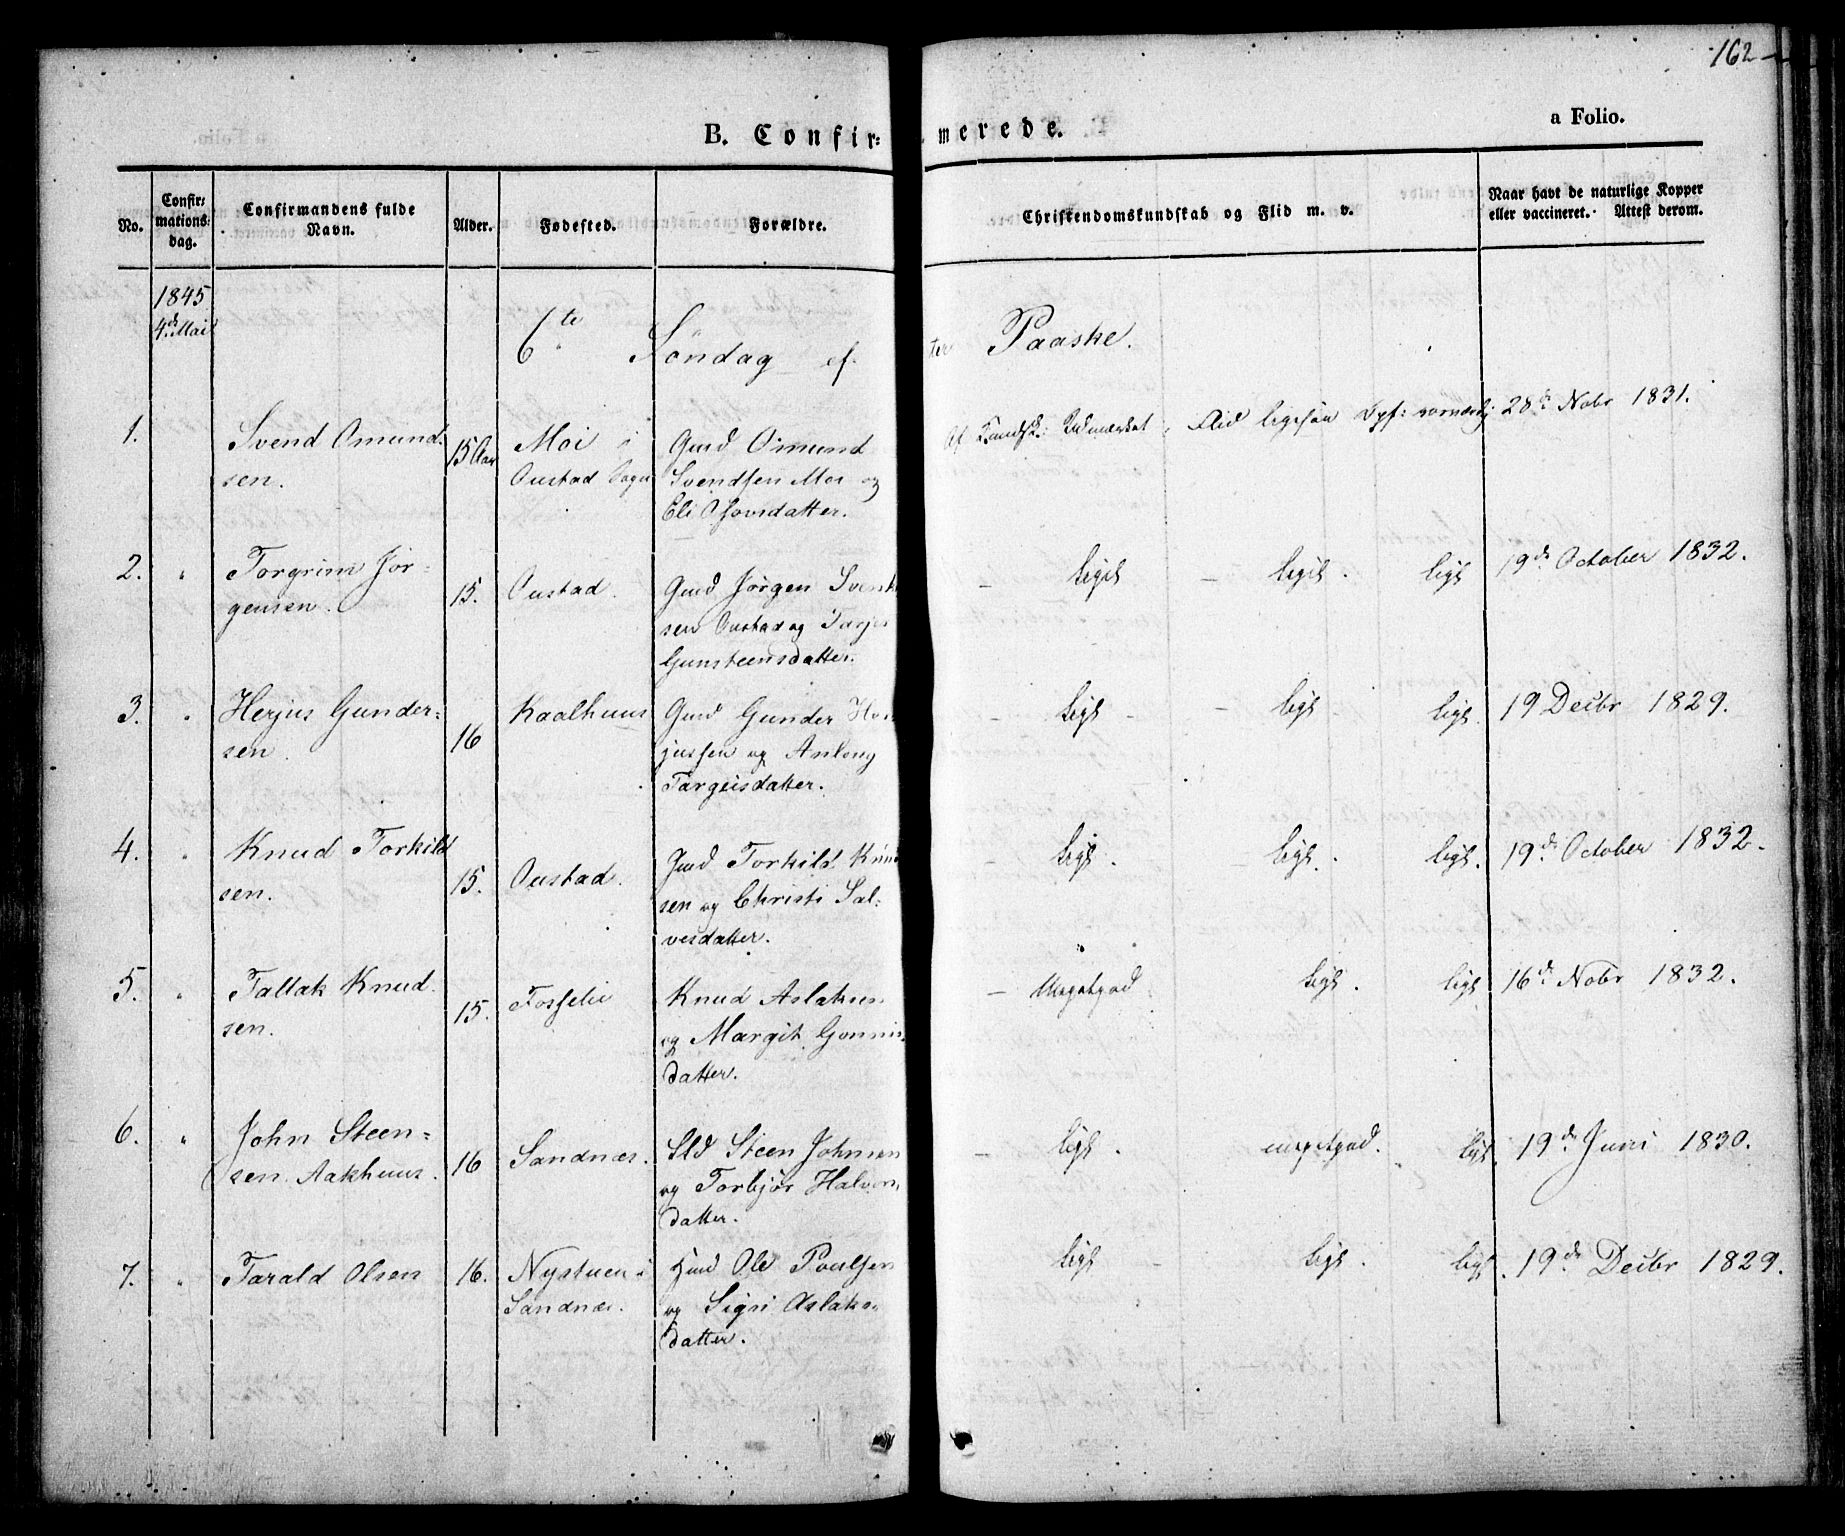 162
B. Confir:
merede.
a Folio.
No.
Confir:
mations
dag.
Confirmandens fulde
Navn.
Alder.
Fødested.
Forældre.
Christendomskundskab og Flid m. v.
Naar havt de naturlige Kopper
eller vaccineret. Attest derom.
1845
4d Mai
6te Søndag ef-
ter Paaske.
1.
Svend Omund-
sen.
15 Aar
Moi i
Oustad Sogn
Gmd Omund
Svendsen Moi og
Eli datter.
Af Kundsk: Udmærket, Flid ligesaa Opf:
28de Nobr 1831.
2.
Torgrim Jør-
gensen.
15.
Oustad.
Gmd Jørgen Svend
sen Oustad og Tarje
Gunsteensdatter.
ligel
ligel.
ligl
19de October 1832.
3.
Herjus Gunder-
sen.
16
Kaalhuus
Gmd Gunder Her
jussen og Anlong
Targeisdatter.
ligl
ligl
ligl.
19 Decbr 1829.
4.
Knud Torkild
sen.
15.
Oustad.
Gmd Torkild Knud
sen og Christi Sal-
vesdatter.
ligl.
ligl.
ligl.
19de October 1832.
5.
Tallak Knud-
sen.
15.
Fosselie
Knud Aslaksen
og Margit Gonnis-
datter.
Megetgod
ligl.
ligl
16de Nobr 1832.
6.
John Steen-
sen Aakhuus.
16
Sandnæs.
Sld Steen Johnsen
og Torbjør Halvors
datter.
ligl.
megetgod.
ligl.
19de Juni 1830.
7.
Tarald Olsen
16.
Nystuen i
Sandnæs.
Hmd Ole Poulsen
og Sigri Aslaks-
datter.
ligl
ligl.
ligl.
19de Decbr 1829.